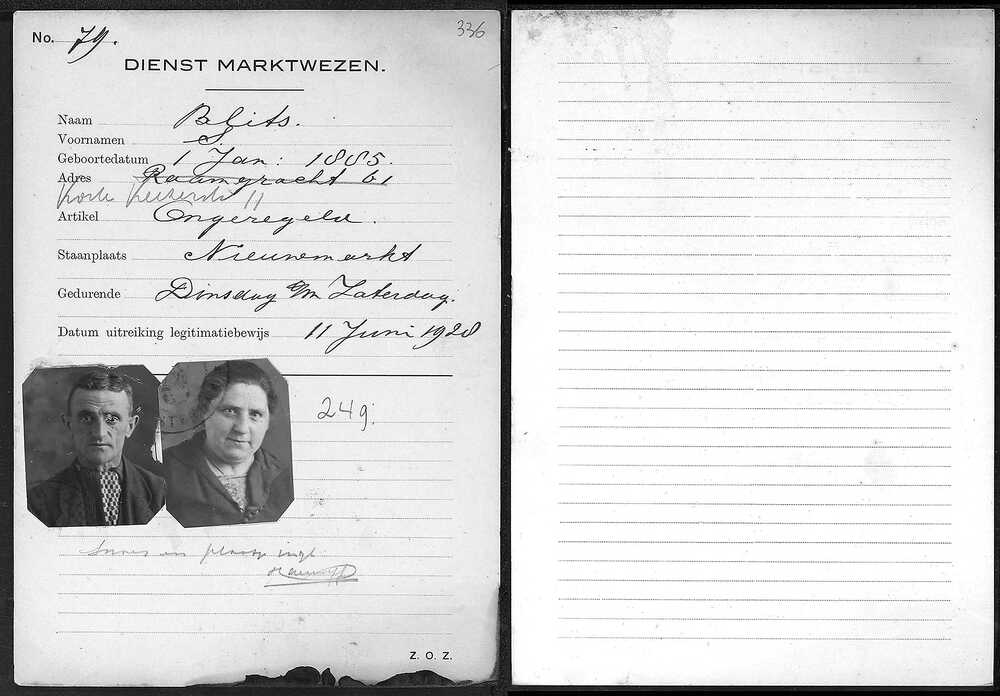 No. 79.
336
DIENST MARKTWEZEN.
Naam Blits.
Voornamen S.
Geboortedatum 1 Jan: 1885.
Adres Raamgracht 61
Korte 11
Artikel Ongeregeld.
Staanplaats Nieuwemarkt
Gedurende Dinsdag t/m Zaterdag.
Datum uitreiking legitimatiebewijs 11 Juni 1928
249.
plaats
Z. O. Z.